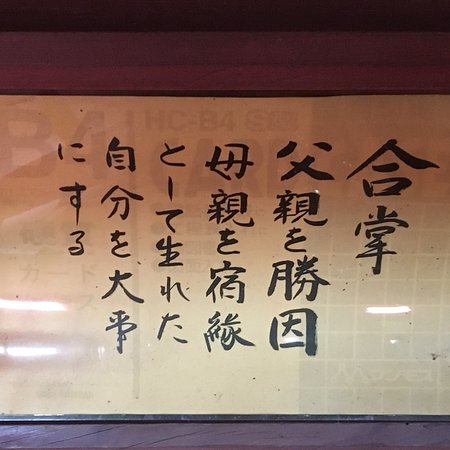 合掌
父親を勝因
母親を宿縁
として生れた
自分を大事
にする
HC-B4
B4